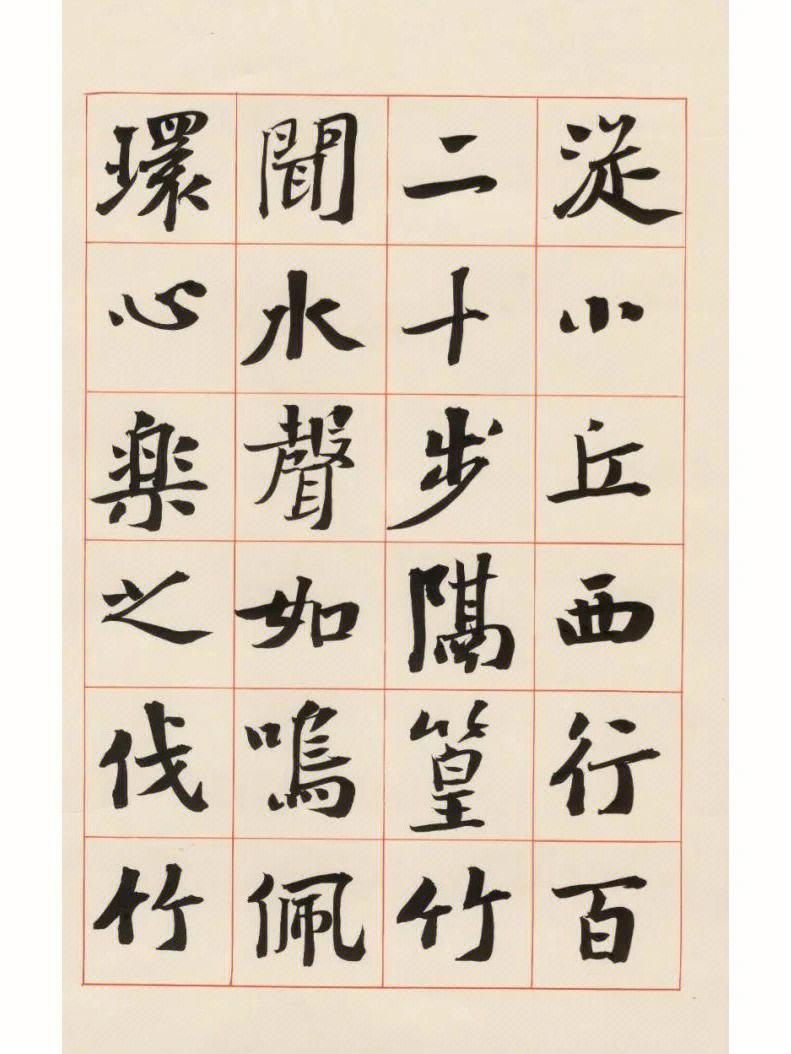 従小丘西行百
二十步隔篁竹
聞水聲如鳴佩
環心楽之伐竹